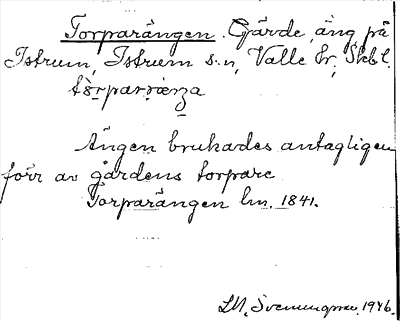 Torparängen. Gärde, äng på
Istrum, Istrum s:n, Valle hr, Skbl.
Ängen brukades antagligen
förr av gårdens torpare.
Torparängen lm. 1841.
1946.